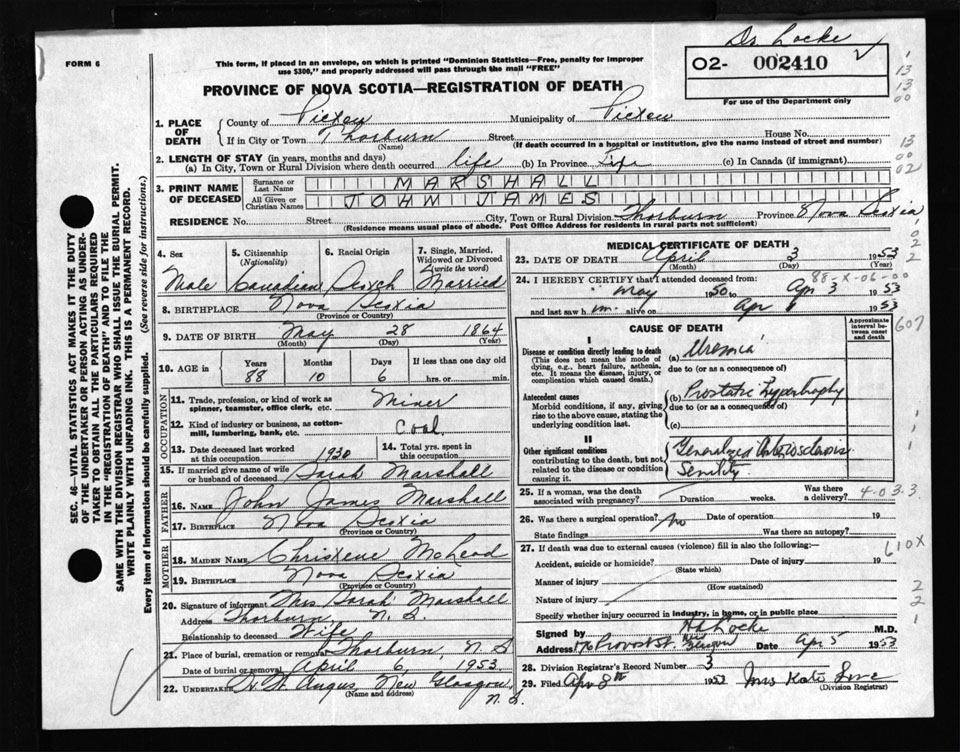 Dr Locke
FORM 6
This form, if placed in an envelope, on which is printed "Dominion Statistics—Free, penalty for improper
use $300," and properly addressed will pass through the mail "FREE"
02- 002410
For use of the Department only
PROVINCE OF NOVA SCOTIA—REGISTRATION OF DEATH
1. PLACE OF DEATH
County of Pictou Municipality of Pictou
If in City or Town Thorburn Street House No.
(Name) (If death occurred in a hospital or institution, give the name instead of street and number)
2. LENGTH OF STAY (in years, months and days)
(a) In City, Town or Rural Division where death occurred life (b) In Province Life (c) In Canada (if immigrant)
3. PRINT NAME OF DECEASED
Surname or Last Name MARSHALL
All Given or Christian Names JOHN JAMES
RESIDENCE No. Street City, Town or Rural Division Thorburn Province Nova Scotia
(Residence means usual place of abode. Post Office Address for residents in rural parts not sufficient)
4. Sex Male
5. Citizenship (Nationality) Canadian
6. Racial Origin Scotch
7. Single, Married, Widowed or Divorced (write the word) Married
8. BIRTHPLACE Nova Scotia
(Province or Country)
9. DATE OF BIRTH May 28 1864
(Month) (Day) (Year)
10. AGE in Years 88 Months 10 Days 6 If less than one day old hrs. or min.
OCCUPATION
11. Trade, profession, or kind of work as spinner, teamster, office clerk, etc. Miner
12. Kind of industry or business, as cotton-mill, lumbering, bank, etc. Coal
13. Date deceased last worked at this occupation 1930
14. Total yrs. spent in this occupation
15. If married give name of wife or husband of deceased Sarah Marshall
FATHER
16. NAME John James Marshall
17. BIRTHPLACE Nova Scotia
(Province or Country)
MOTHER
18. MAIDEN NAME Christene McLeod
19. BIRTHPLACE Nova Scotia
(Province or Country)
20. Signature of informant Mrs Sarah Marshall
Address Thorburn, N.S.
Relationship to deceased Wife
21. Place of burial, cremation or removal Thorburn, N.S
Date of burial or removal April 6, 1953.
22. Undertaker Angus, New Glasgow,
(Name and address)
N.S.
MEDICAL CERTIFICATE OF DEATH
23. DATE OF DEATH April 3 1953
(Month) (Day) (Year)
88-X-06-00
24. I HEREBY CERTIFY that I attended deceased from:
May 1950 to Apr 3 1953
and last saw him alive on Apr 1953
CAUSE OF DEATH
Approximate interval between onset and death
607
I
Disease or condition directly leading to death (a) Uremia
(This does not mean the mode of dying, e.g., heart failure, asthenia, etc. It means the disease, injury, or complication which caused death.)
due to (or as a consequence of)
Antecedent causes (b) Prostatic hypertrophy
Morbid conditions, if any, giving rise to the above cause, stating the underlying condition last.
due to (or as a consequence of)
(c)
II
Other significant conditions Generalized Arteriosclerosis
contributing to the death, but not related to the disease or condition causing it. Senility
25. If a woman, was the death associated with pregnancy? Duration weeks. Was there a delivery?
4-03.3
26. Was there a surgical operation? no Date of operation 19
State findings Was there an autopsy?
27. If death was due to external causes (violence) fill in also the following:—
610X
Accident, suicide or homicide? Date of injury 19
(State which)
Manner of injury
(How sustained)
Nature of injury
Specify whether injury occurred in industry, in home, or in public place
Signed by Locke M.D.
Address 176 Provost St. New Glasgow Date Apr 5 1953
28. Division Registrar's Record Number 3
29. Filed Apr 8th 1953 Mrs Kate
(Division Registrar)
SEC. 46 VITAL STATISTICS ACT MAKES IT THE DUTY
OF THE UNDERTAKER OR PERSON ACTING AS UNDER-
TAKER TO OBTAIN ALL THE PARTICULARS REQUIRED
IN THE "REGISTRATION OF DEATH" AND TO FILE THE
SAME WITH THE DIVISION REGISTRAR WHO SHALL ISSUE THE BURIAL PERMIT.
WRITE PLAINLY WITH UNFADING INK. THIS IS A PERMANENT RECORD.
Every item of information should be carefully supplied. (See reverse side for instructions.)